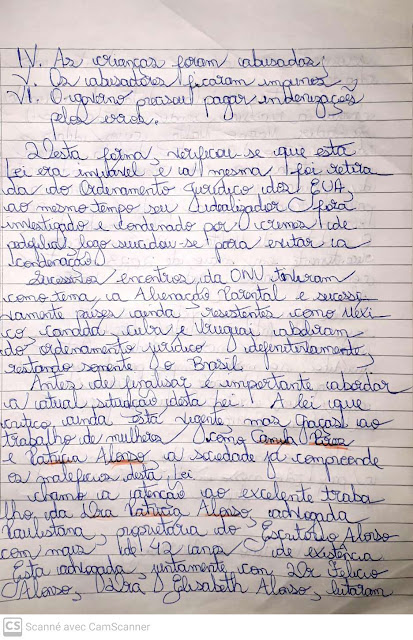 IV. As crianças foram abusadas;
V. Os abusadores ficaram impunes
VI. O governo precisou pagar indenizações
pelos erros.
Desta forma, verificou-se que esta
Lei era inviável e a mesma foi retira
da do Ordenamento Jurídico dos EUA,
ao mesmo tempo seu idealizador fora
investigado e condenado por crimes de
pedofilia, logo suicidou-se para evitar a
condenação.
Sucessivos encontros da ONU tiveram
como tema a Alienação Parental e sucessi
vamente países ainda resistentes como Méxi
co, Canadá, Cuba e Uruguai aboliram
do ordenamento jurídico definitivamente,
restando somente o Brasil
Antes de finalisar é importante abordar
a atual situação desta Lei. A lei que
critico ainda está vigente, mas graças ao
trabalho de mulheres como Camila Pires
e Patrícia Alonso a sociedade já compreende
os malefícios desta Lei
Chamo a atenção ao excelente traba
lho da Dra Patrícia Alonso, advogada
Paulistana, proprietária do Escritório Alonso
com mais de 42 anos de existência
Esta advogada, juntamente com Dr Felicio
Alonso, Dra Elisabeth Alonso, lutaram
CS Scanné avec CamScanner